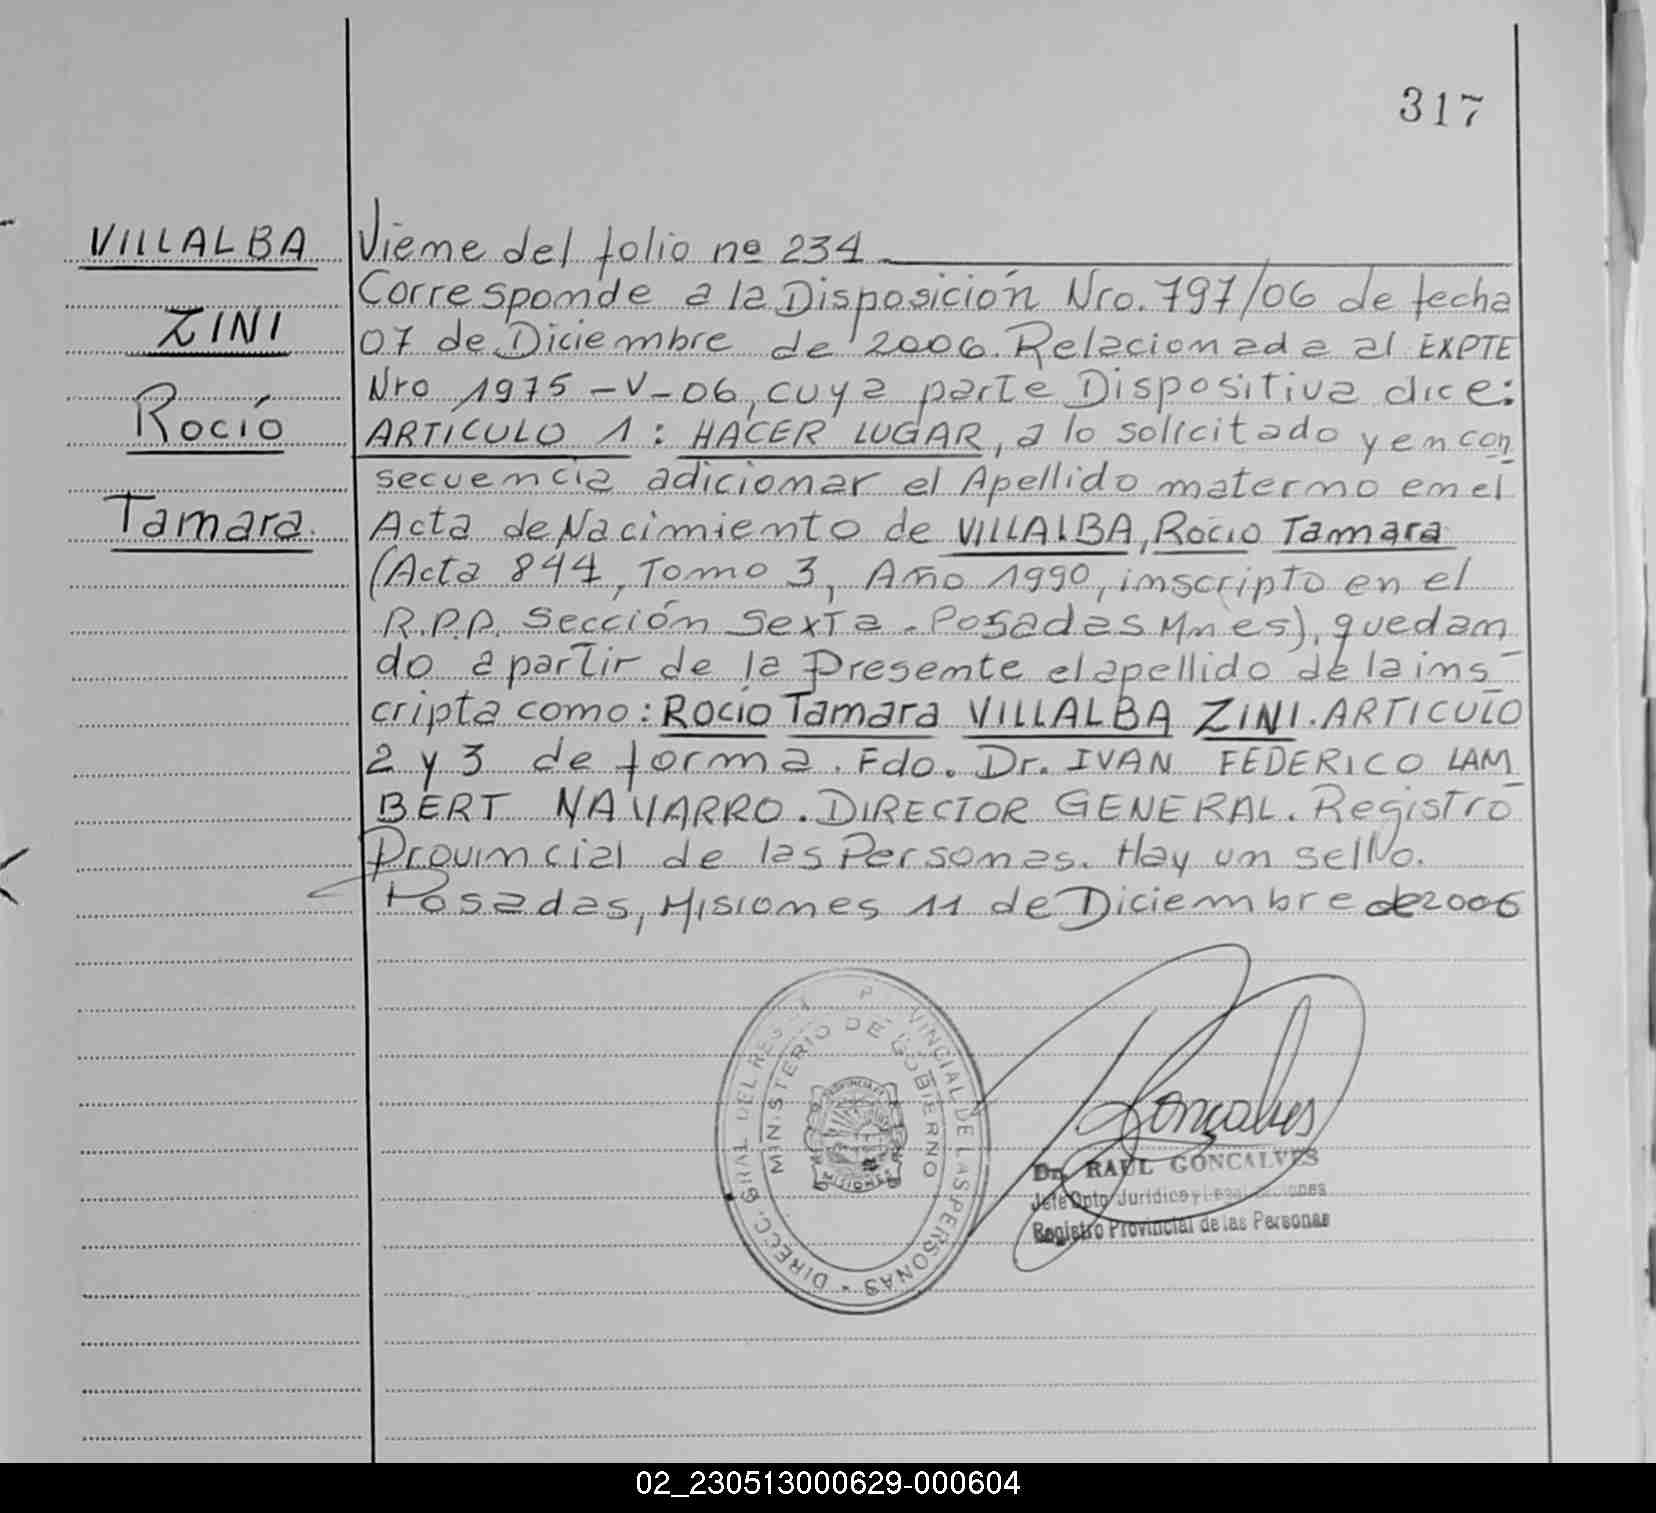 317
VILLALBA
ZINI
Rocío
Tamara.
Viene del folio nº 234
Corresponde a la Disposición Nro. 797/06 de fecha
07 de Diciembre de 2006. Relacionada al EXPTE
Nro 1975-V-06, cuya parte Dispositiva dice:
ARTICULO 1: HACER LUGAR, a lo solicitado y en con
secuencia adicionar el Apellido materno en el
Acta de Nacimiento de VILLALBA, Rocío Tamara
(Acta 844, Tomo 3, Año 1990, inscripto en el
R.P.P. Sección Sexta - Posadas Mnes), quedan
do a partir de la Presente el apellido de la ins
cripta como: Rocío Tamara VILLALBA ZINI. ARTICULO
2 y 3 de forma. Fdo. Dr. IVAN FEDERICO LAM
BERT NAVARRO. DIRECTOR GENERAL. Registro
Provincial de las Personas. Hay un sello.
Posadas, Misiones 11 de Diciembre de 2006
DIRECC. GRAL DEL REGIST P VINCIAL DE LAS PERSONAS
MINISTERIO DE GOBIERNO
PROVINCIA DE
MISIONES
Goncalves
Dr. RAUL GONCALVES
Jefe Dpto Jurídico y
Registro Provincial de las Personas
02_230513000629-000604